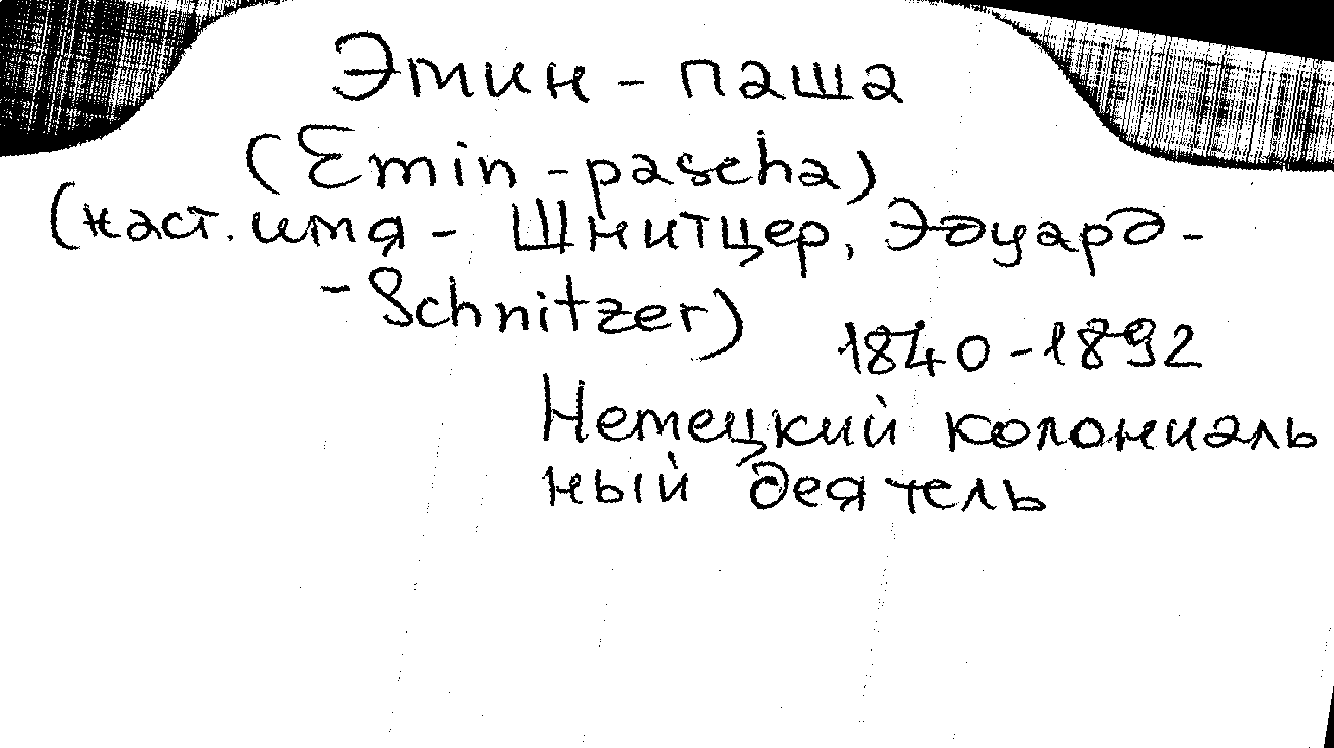 Эмин - паша
(Emin - pascha)
(наст. имя - Шнитцер, Эдуард -
- Schnitzer)
1840 - 1892
Немецкий колониаль
ный деятель